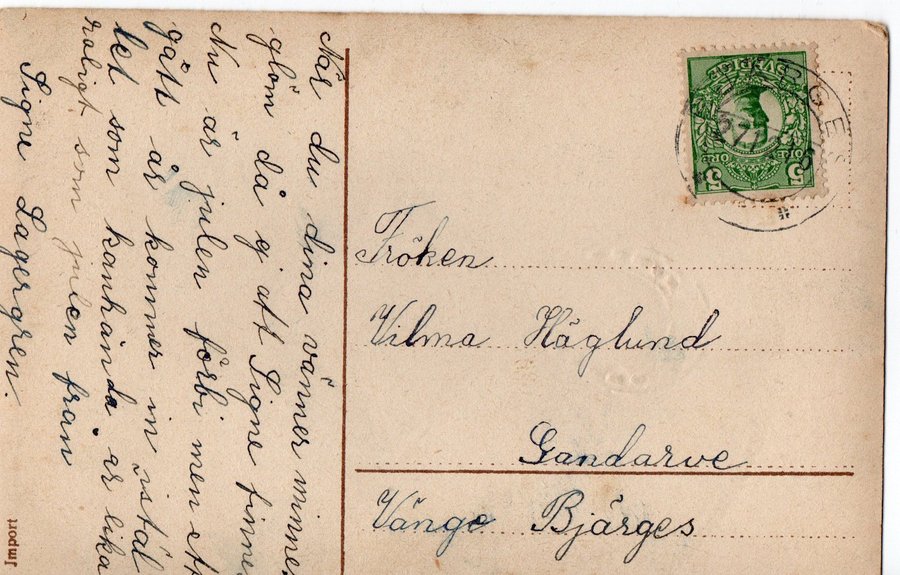 När du dina vänner minnes
glöm då ej att Signe finnes
Nu är julen förbi men ett
gått år kommer in istäl
let som kanhända är lika
roligt som julen från
Signe Lagergren.
SVERIGE
5 ÖRE 5
Fröken
Vilma Häglund
Gandarve
Vänge Bjärges
Jmport